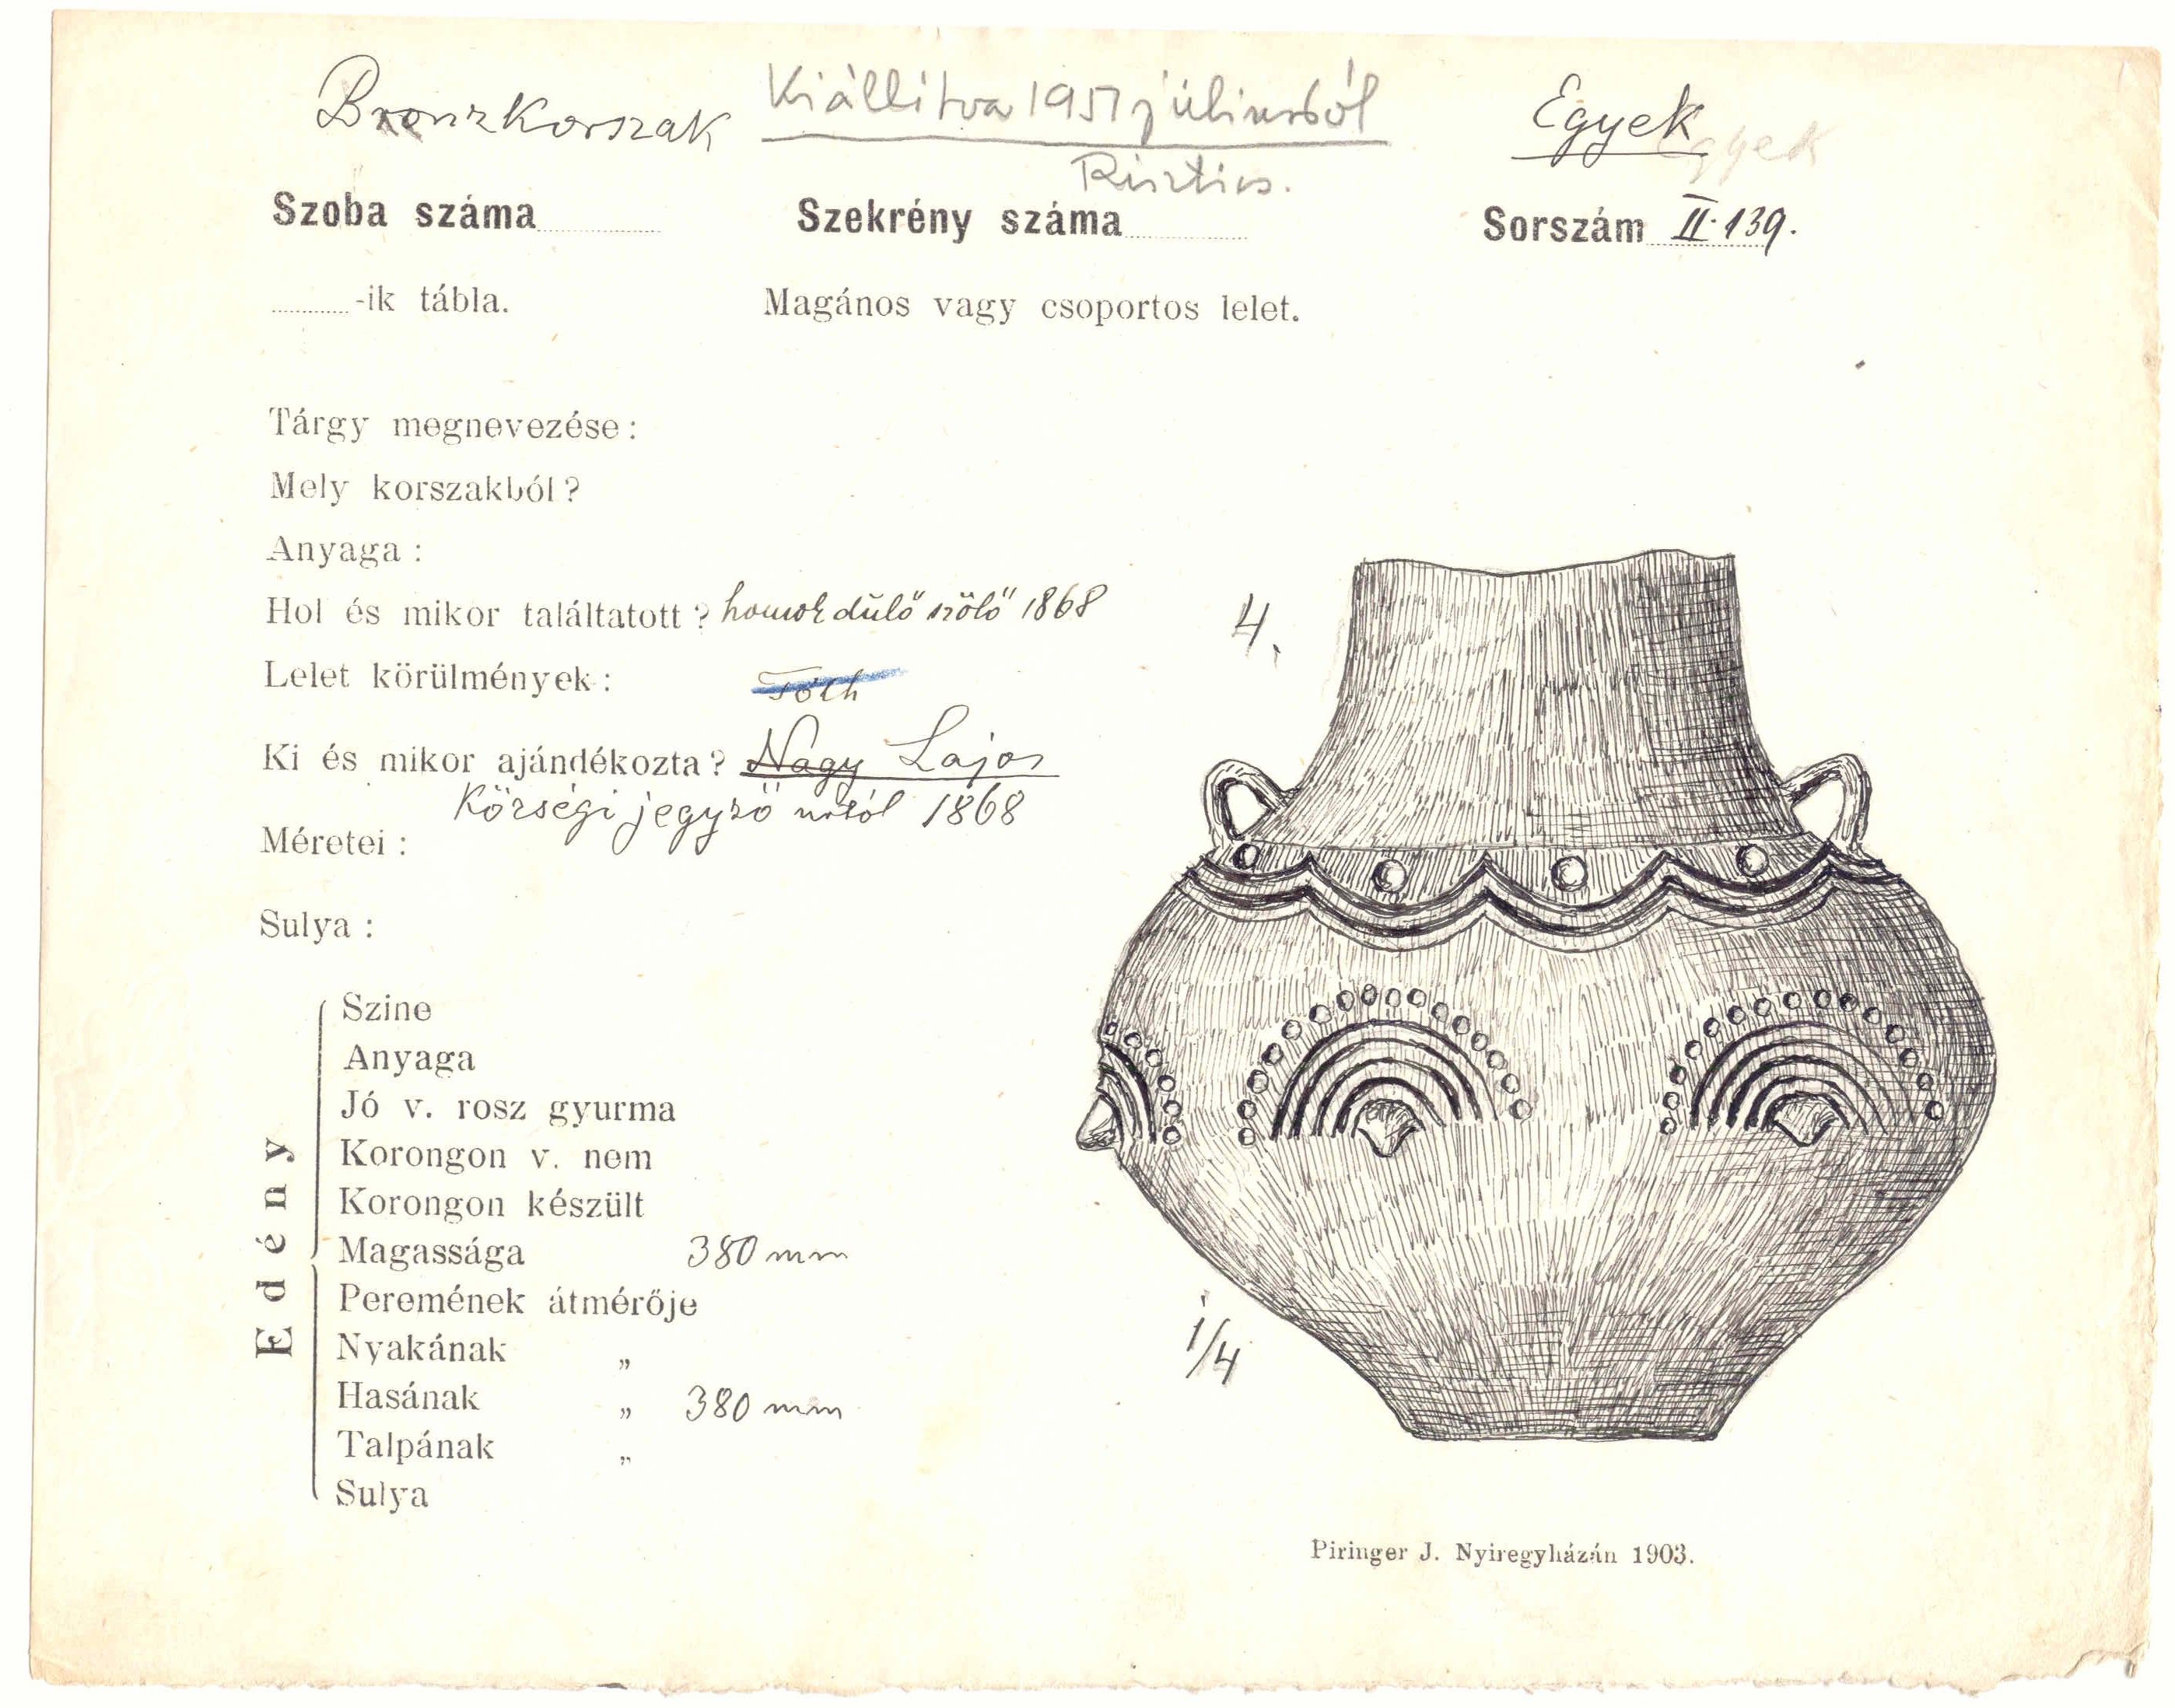 Bronzkorszak
Kiállitva 1951 júliusból
Egyek
Egyek
Risztics.
Szoba száma
Szekrény száma
Sorszám II. 139.
-ik tábla.
Magános vagy csoportos lelet.
Tárgy megnevezése:
Mely korszakból?
Anyaga:
Hol és mikor találtatott? homok dülő szőlő 1868
4.
Lelet körülmények:
Tóth
Ki és mikor ajándékozta? Nagy Lajos
Községi jegyző 1868
Méretei:
Sulya:
Edény
Szine
Anyaga
Jó v. rosz gyurma
Korongon v. nem
Korongon készült
Magassága 380 mm
Peremének átmérője
1/4
Nyakának „
Hasának „ 380 mm
Talpának „
Sulya
Piringer J. Nyiregyházán 1903.